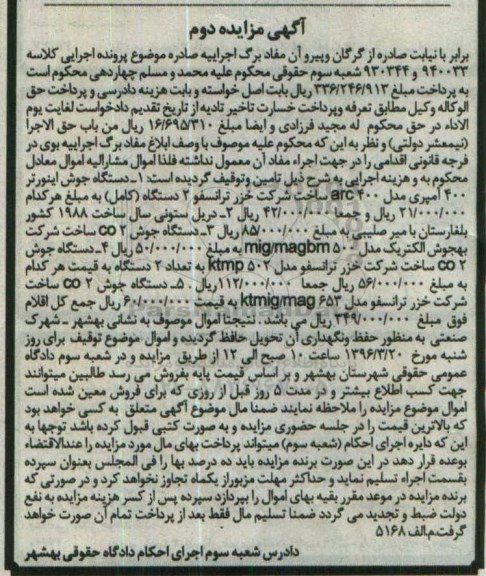 آگهی مزایده دوم
برابر با نیابت صادره از گرگان وپیرو آن مفاد برگ اجراییه صادره موضوع پرونده اجرایی کلاسه
۹۴۰۰۳۳ و ۹۳۰۳۴۴ شعبه سوم حقوقی محکوم علیه محمد و مسلم چهاردهی محکوم است
به پرداخت مبلغ ۳۳۶/۲۴۶/۹۱۳ ریال بابت اصل خواسته و بابت هزینه دادرسی و پرداخت حق
الوکاله وکیل مطابق تعرفه وپرداخت خسارت تاخیر تادیه از تاریخ تقدیم دادخواست لغایت یوم
الاداء در حق محکوم له مجید فرزادی و ایضا مبلغ ۱۶/۶۹۵/۳۱۰ ریال من باب حق الاجرا
(نیمعشر دولتی) و نظر به این که محکوم علیه موصوف با وصف ابلاغ مفاد برگ اجراییه بوی در
فرجه قانونی اقدامی را در جهت اجراء مفاد آن معمول نداشته فلذا اموال مشارالیه اموال معادل
محکوم به و هزینه اجرایی به شرح ذیل تامین وتوقیف گردیده است: ۱ـ دستگاه جوش اینورتر
۴۰۰ آمپری مدل arc ۴۰۰ ساخت شرکت خزر ترانسفو ۲ دستگاه (کامل) به مبلغ هر کدام
۲۱/۰۰۰/۰۰۰ ریال و جمعا ۴۲/۰۰۰/۰۰۰ ریال ۲ـ دریل ستونی سال ساخت ۱۹۸۸ کشور
بلغارستان با میر صلیبی به مبلغ ۸۵/۰۰۰/۰۰۰ ریال ۳ـ دستگاه جوش co ۲ ساخت شرکت
بهجوش الکتریک مدل mig/magbm ۵۰۰ به مبلغ ۵۰/۰۰۰/۰۰۰ ریال ۴ـ دستگاه جوش
co ۲ ساخت شرکت خزر ترانسفو مدل ktmp ۵۰۲ به تعداد ۲ دستگاه به قیمت هر کدام
به مبلغ ۵۶/۰۰۰/۰۰۰ ریال جمعا ۱۱۲/۰۰۰/۰۰۰ ریال ۵ـ دستگاه جوش co ۲ ساخت
شرکت خزر ترانسفو مدل ktmig/mag ۶۵۳ به قیمت ۶۰/۰۰۰/۰۰۰ ریال جمع کل اقلام
فوق مبلغ ۳۴۹/۰۰۰/۰۰۰ ریال می باشد. نتیجتا اموال موصوف به نشانی بهشهر ـ شهرک
صنعتی به منظور حفظ ونگهداری آن تحویل حافظ گردیده و اموال موضوع توقیف برای روز
شنبه مورخ ۱۳۹۶/۳/۲۰ ساعت ۱۰ صبح الی ۱۲ از طریق مزایده و در شعبه سوم دادگاه
عمومی حقوقی شهرستان بهشهر و بر اساس قیمت پایه بفروش می رسد طالبین میتوانند
جهت کسب اطلاع بیشتر و در مدت ۵ روز قبل از روزی که برای فروش معین شده است
اموال موضوع مزایده را ملاحظه نمایند ضمنا مال موضوع آگهی متعلق به کسی خواهد بود
که بالاترین قیمت را در جلسه حضوری مزایده و به صورت کتبی قبول کرده باشد توجها به
این که دایره اجرای احکام (شعبه سوم) میتواند پرداخت بهای مال مورد مزایده را عندالاقتضاء
بوعده قرار دهد در این صورت برنده مزایده باید ده درصد بها را فی المجلس بعنوان سپرده
بقسمت اجراء تسلیم نماید و حداکثر مهلت مزبور از یکماه تجاوز نخواهد کرد و در صورتی که
برنده مزایده در موعد مقرر بقیه بهای اموال را بپردازد سپرده پس از کسر هزینه مزایده به نفع
دولت ضبط و تجدید می گردد ضمنا تسلیم مال فقط بعد از پرداخت تمام آن صورت خواهد
گرفت.م/الف ۵۱۶۸
دادرس شعبه سوم اجرای احکام دادگاه حقوقی بهشهر